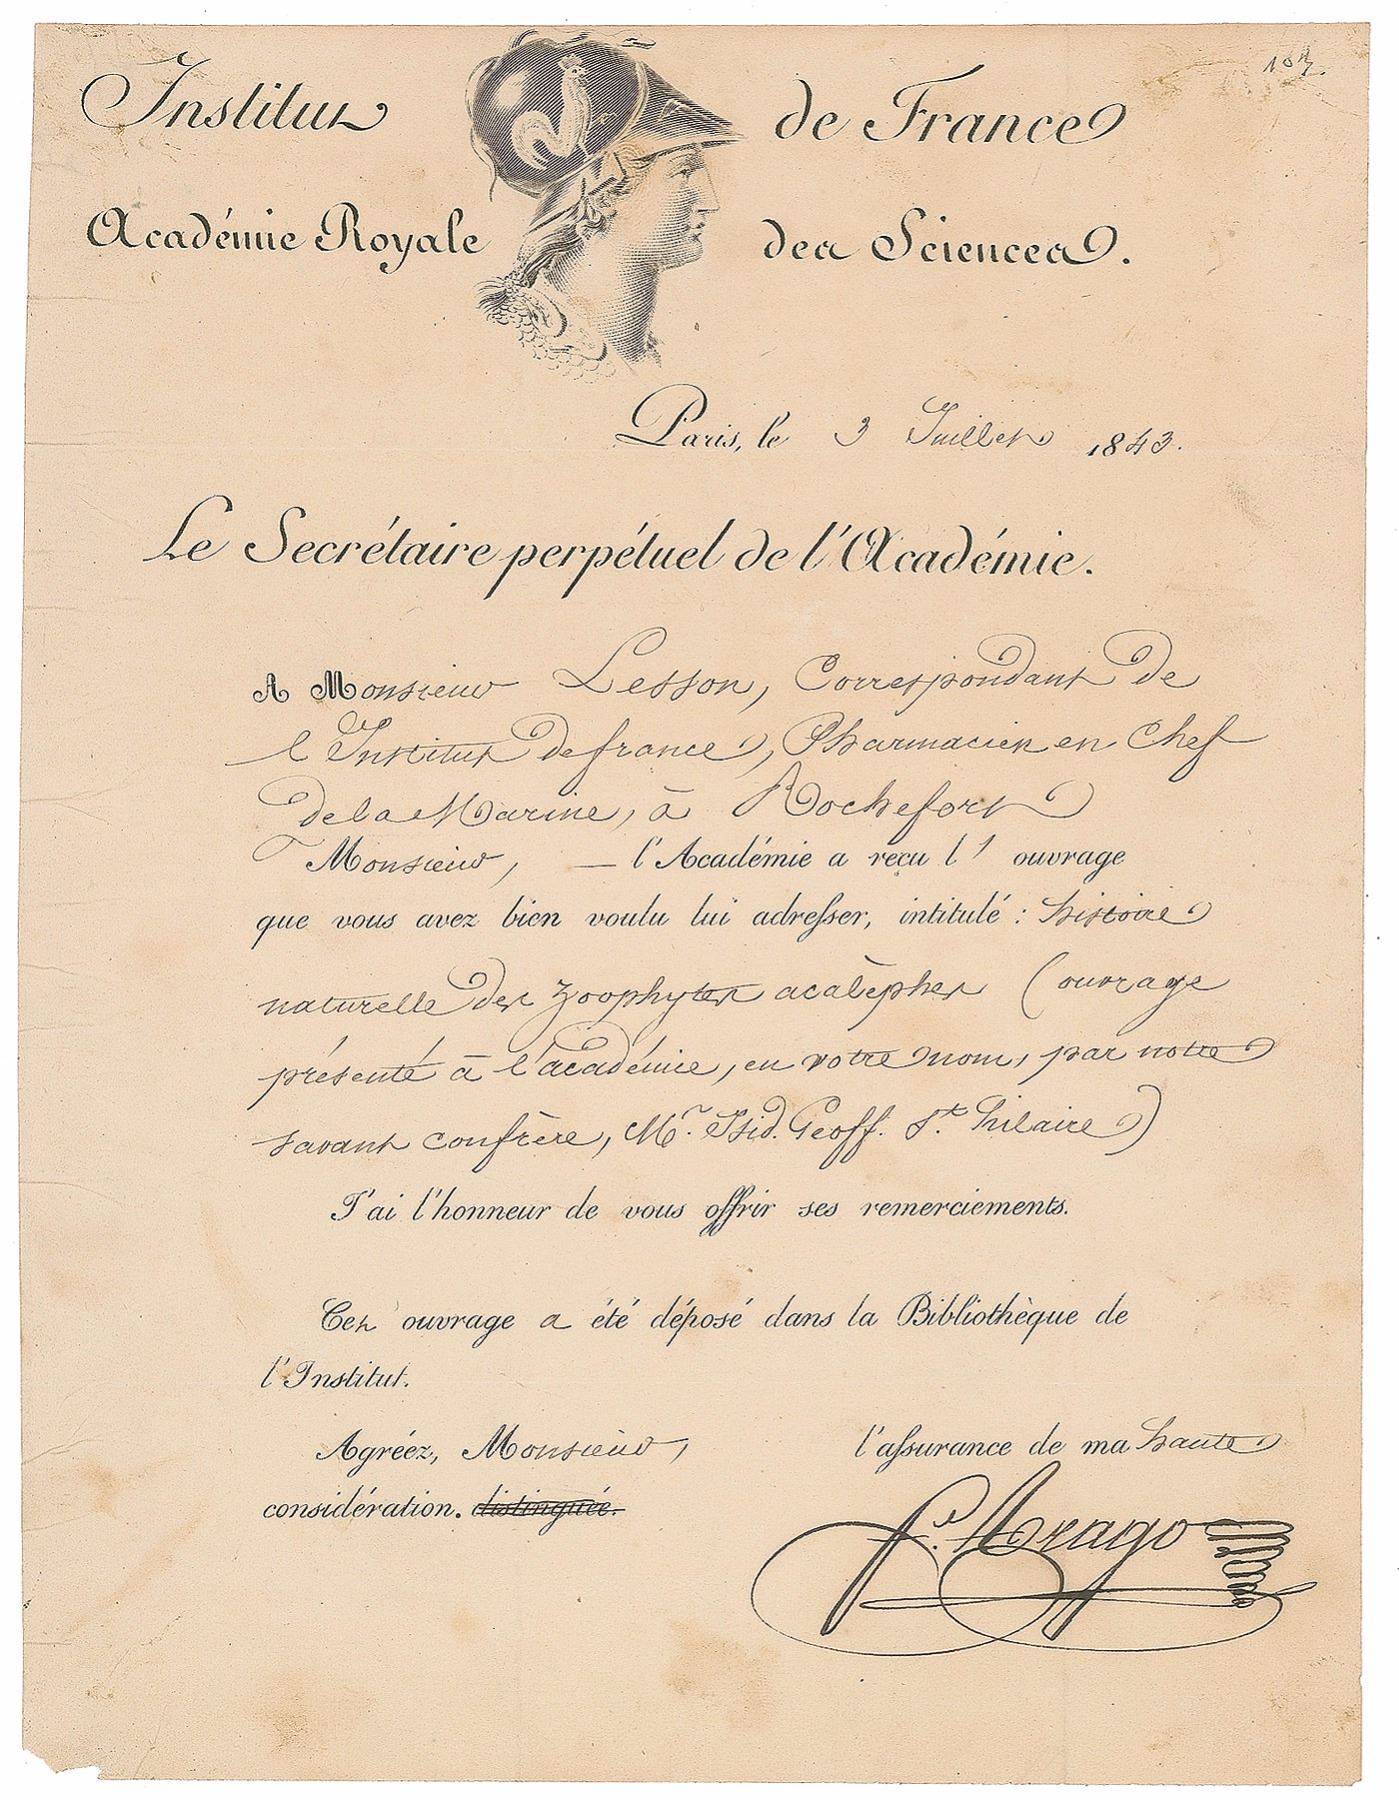 Institut de France
Académie Royale des Sciences.
Paris, le 3 Juillet 1843.
Le Secrétaire perpétuel de l'Académie.
A Monsieur Lesson, Correspondant de
l'Institut de france, Pharmacien en Chef
de la Marine, à Rochefort
Monsieur, — l'Académie a reçu l' ouvrage
que vous avez bien voulu lui adresser, intitulé : histoire
naturelle des zoophytes acalèphes (ouvrage
présenté à l'académie, en votre nom, par notre
savant confrère, Mr. Isid. Geoff. St. hilaire)
J'ai l'honneur de vous offrir ses remerciements.
Cet ouvrage a été déposé dans la Bibliothèque de
l'Institut.
Agréez, Monsieur, l'assurance de ma haute
considération. distinguée.
F. Arago